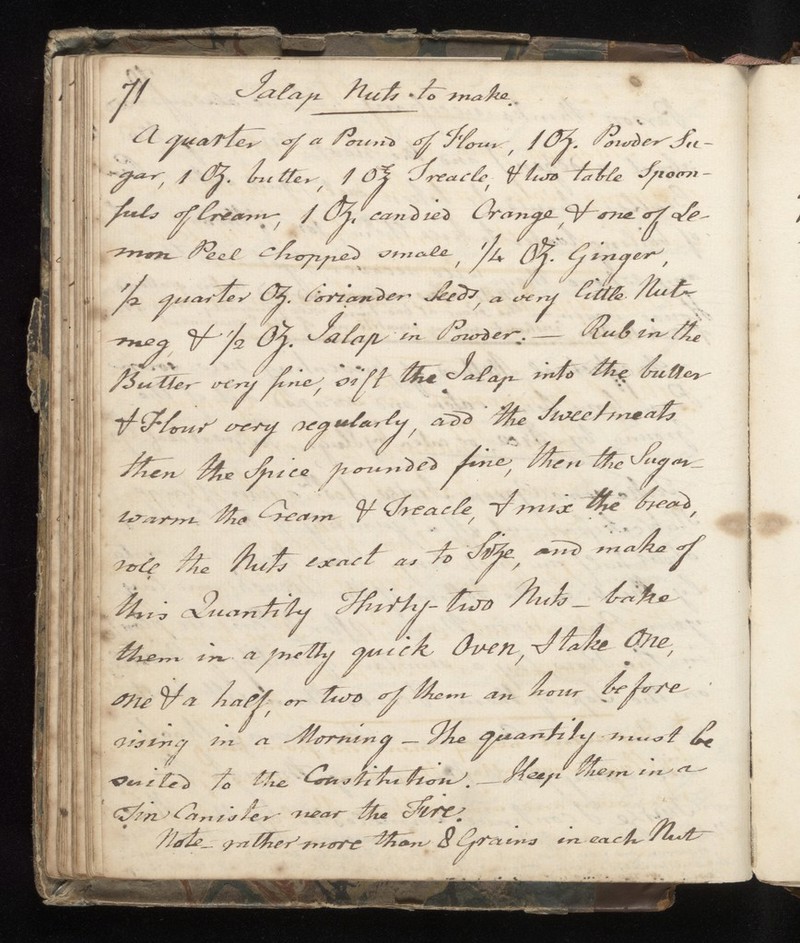 71 Jalap Nuts to make.
A quarter of a Pound of Flour, 1 Oz. Powder Su-
gar, 1 Oz. butter, 1 Oz Treacle, & two table Spoon-
fuls of Cream, 1 Oz. candied Orange, & one of Le-
mon Peel chopped small, 1/4 Oz. Ginger,
1/2 quarter Oz. Coriander Seeds, a very little Nut-
meg & 1/2 Oz. Jalap in Powder. — Rub in the
Butter very fine, sift the Jalap into the butter
& Flour very regularly, add the Sweetmeats
then the Spice pounded fine, then the Sugar_
warm the Cream & Treacle, & mix the bread,
role the Nuts exact as to Size, and make of
this Quantity Thirty-two Nuts_ bake
them in a pretty quick Oven, & take One,
one & a half, or two of them an hour before
rising in a Morning — The quantity must be
suited to the Constitution. — Keep them in a
Tin Canister near the Fire.
Note_ rather more than 8 Grains in each Nut